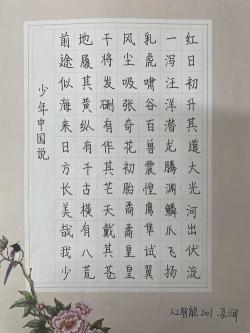 红日初升其道大光河出伏流
一泻汪洋潜龙腾渊鳞爪飞扬
乳虎啸谷百兽震惶鹰隼试翼
风尘吸张奇花初胎矞矞皇皇
干将发硎有作其芒天戴其苍
地履其黄纵有千古横有八荒
前途似海来日方长美哉我少
少年中国説
智能201